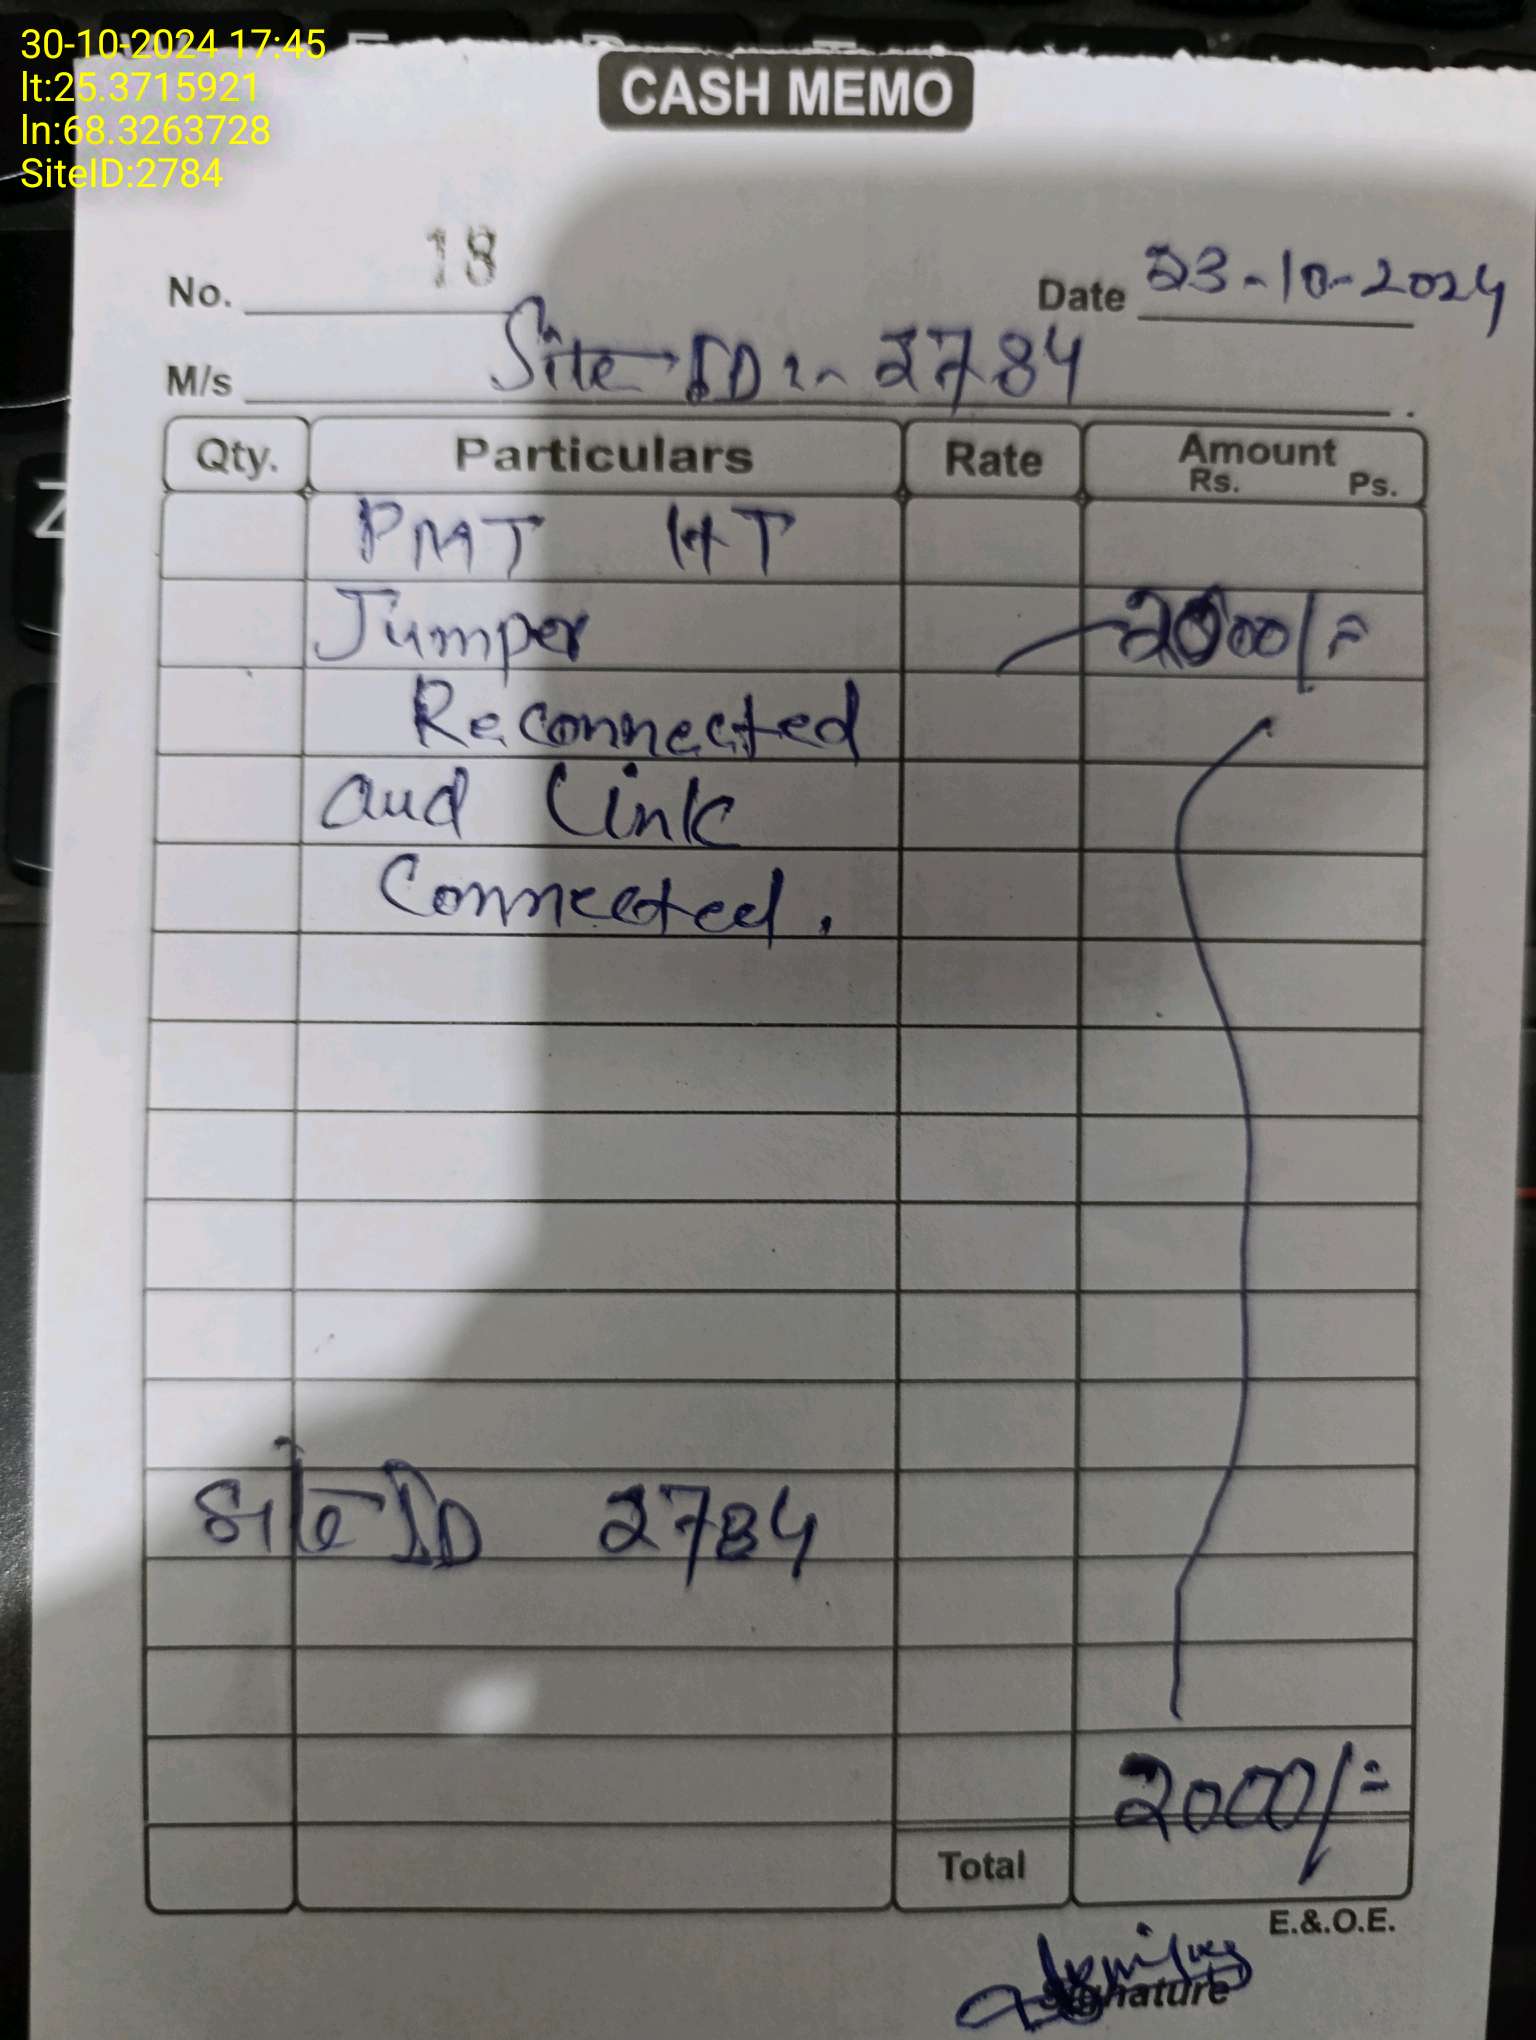 30-10-2024 17:45
lt:25.3715921
ln:68.3263728
SiteID:2784
CASH MEMO
No. 18
Date 23-10-2024
M/s Site ID :- 2784
Qty. Particulars Rate Amount
Rs. Ps.
PMT HT
Jumper 2000/=
Reconnected
and Link
Connected.
Site ID 2784
2000/=
Total
E.&.O.E.
Signature